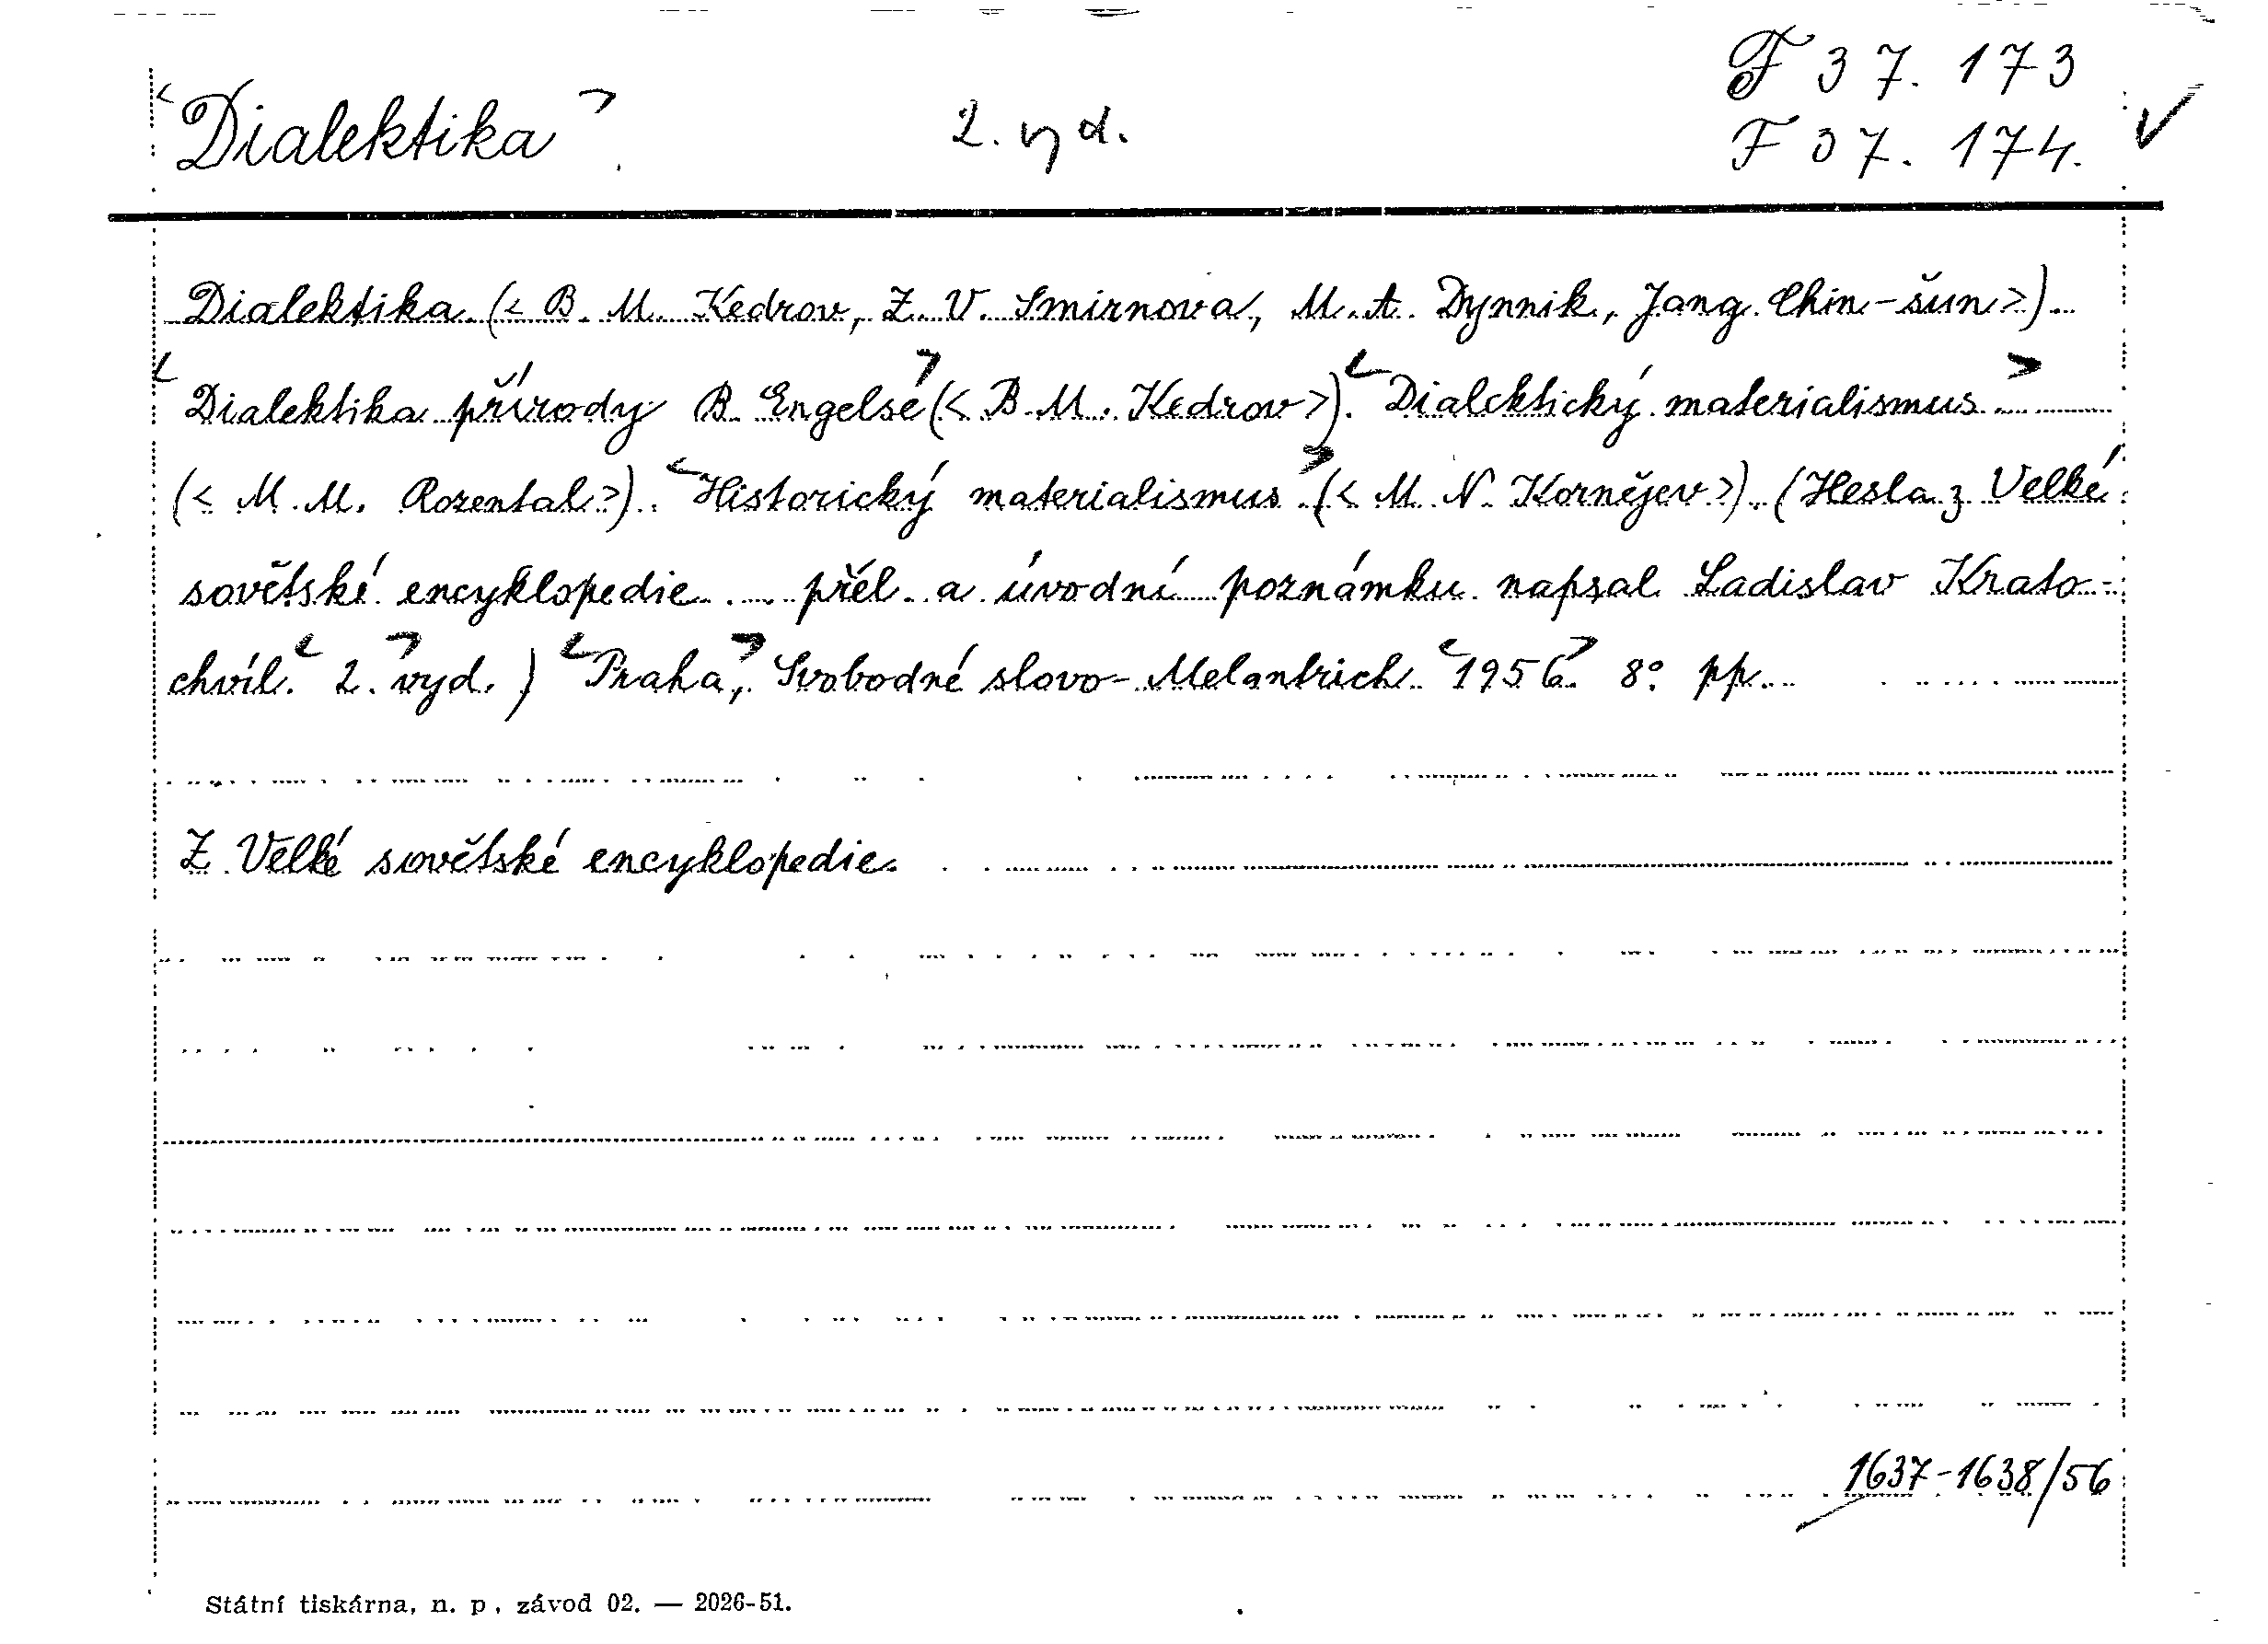 <Dialektika>. 2. vyd. F 37.173
F 37.174.
Dialektika (<B. M. Kedrov, Z. V. Smirnova, M. A. Dynnik, Jang Chin-šun>).
<Dialektika přírody B. Engelse>(<B. M. Kedrov>). <Dialektický materialismus>
(<M. M. Rozental>). <Historický materialismus> (<M. N. Kornějev>). (Hesla z Velké
sovětské encyklopedie ... přel. a úvodní poznámku napsal Ladislav Krato-
chvíl. <2. vyd.>) <Praha>, Svobodné slovo-Melantrich <1956>. 8° pp.
Z Velké sovětské encyklopedie.
1637-1638/56
Státní tiskárna, n. p., závod 02. — 2026-51.